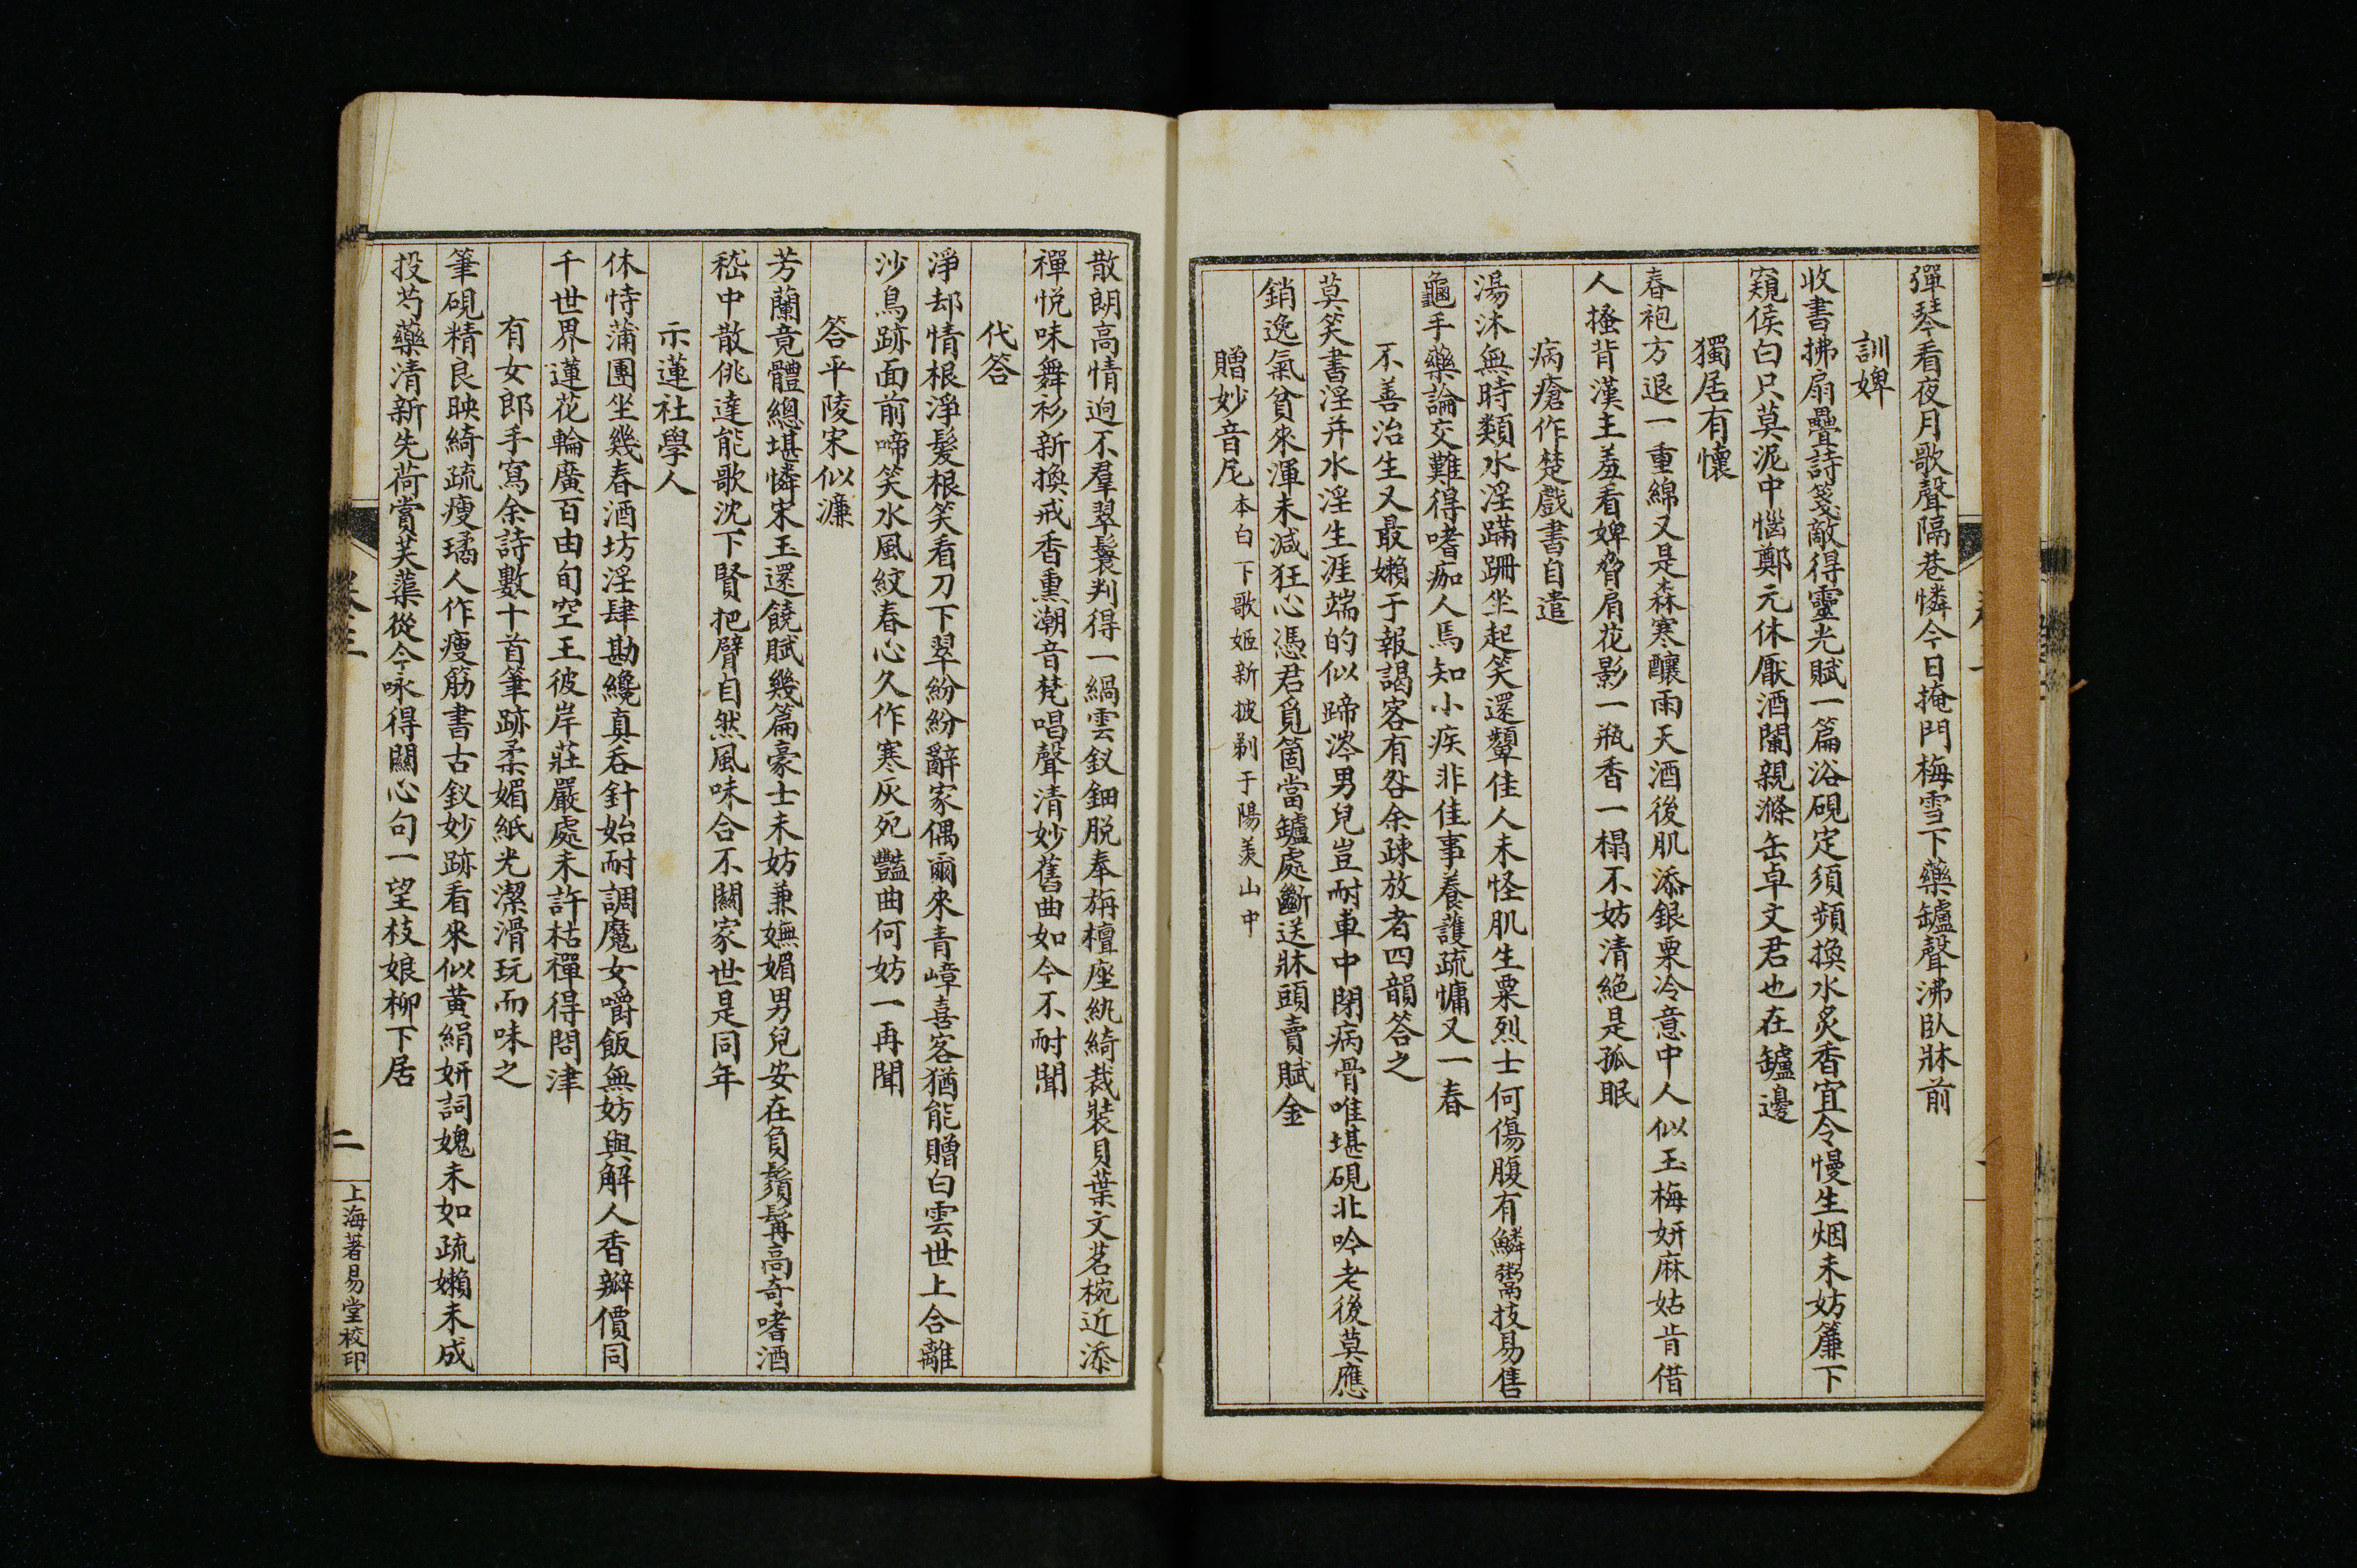 彈琴看夜月歌聲隔巷憐今日掩門梅雪下藥罏聲沸臥牀前
訓婢
收書拂扇疊詩箋敵得靈光賦一篇浴硯定須頻換水炙香宜令慢生烟未妨簾下
窺侯白只莫泥中惱鄭元休厭酒闌親滌缶卓文君也在罏邊
獨居有懷
春袍方退一重綿又是森寒釀雨天酒後肌添銀粟冷意中人似玉梅妍麻姑肯借
人搔背漢主羞看婢脅肩花影一瓶香一榻不妨清絕是孤眠
病瘡作楚戲書自遣
湯沐無時類水淫蹣跚坐起笑還顰佳人未怪肌生粟烈士何傷腹有鱗鬻技易售
龜手藥論交難得嗜痂人焉知小疾非佳事養護疏慵又一春
不善治生又最嬾于報謁客有咎余疎放者四韻答之
莫笑書淫并水淫生涯端的似蹄涔男兒豈耐車中閉病骨唯堪硯北吟老後莫應
銷逸氣貧來渾未減狂心憑君覓箇當罏處斷送牀頭賣賦金
贈妙音尼本白下歌姬新披剃于陽羨山中
散朗高情迥不羣翠鬟判得一緺雲釵鈿脱奉旃檀座紈綺裁裝貝葉文茗椀近添
禪悦味舞衫新換戒香熏潮音梵唱聲清妙舊曲如今不耐聞
代答
淨却情根淨髮根笑看刀下翠紛紛辭家偶爾來青嶂喜客猶能贈白雲世上合離
沙鳥跡面前啼笑水風紋春心久作寒灰死豔曲何妨一再聞
答平陵宋似濂
芳蘭竟體總堪憐宋玉還饒賦幾篇豪士未妨兼嫵媚男兒安在負鬚髯高奇嗜酒
嵇中散佻達能歌沈下賢把臂自然風味合不關家世是同年
示蓮社學人
休恃蒲團坐幾春酒坊淫肆勘纔真吞針始耐調魔女嚼飯無妨與解人香瓣價同
千世界蓮花輪廣百由旬空王彼岸莊嚴處未許枯禪得問津
有女郎手寫余詩數十首筆跡柔媚紙光潔滑玩而味之
筆硯精良映綺疏瘦璚人作瘦筋書古釵妙跡看來似黃絹妍詞媿未如疏嬾未成
投芍藥清新先荷賞芙蕖從今咏得關心句一望枝娘柳下居
二
上海著易堂校印